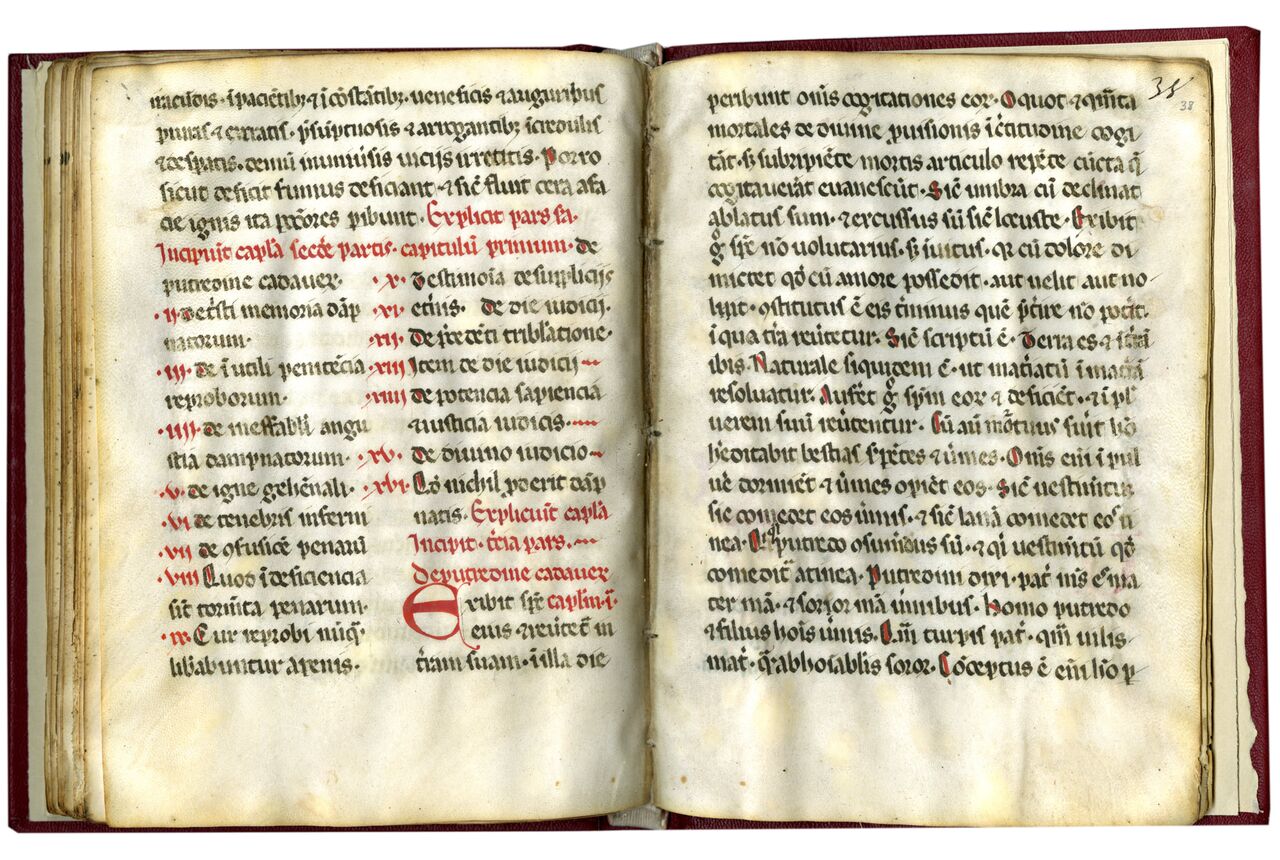 iracūdis · īpaciētibȝ ⁊ īcōstātibȝ · veneficis ⁊ auguribus
piuris ⁊ exratis · p̄sūptuosis ⁊ arrogantibȝ īcredulis
⁊ desꝑatis · demū inumīsis vicijs irretitis · Porro
sicut deficit fumus deficiant · ⁊ sic̄ fluit cera a fa
cie ignis ita pc̄cōres ꝑibunt · Explicit pars sa·
Incipiūt capl̄a secūde partis · capitulū primum · de
putredine cadaver·
·ii· De tristi memoria dāp
natorum·
·iii· De ī utili penitēcia
reproborum·
·iiii· de ineffabli angu
stia dampnatorum·
·v· de igne gehēnali·
·vi· de tenebris inferni
·vii· de ꝯfusiōe penarū
·viii· Quod īdeficiencia
sīt tormēta penarum·
·ix· Cur reprobi nūqȝ
libābuntur a penis·
·x· Testimōia de suplicijs
·xi· etn̄is· de die iudicij·
·xii· De p̄cedēti tribl̄atione·
·xiii· Item de die iudicij
·xiiii· de potencia sapiencia
⁊ iusticia iudicis·
·xv· De diuino iudicio
·xvi· Qō nichil ꝓderit dāp
natis· Explicuīt capl̄a
Incipit · t̄cia pars·
De putredine cadaver
Exibit sp̄c capl̄m · i·
eius ⁊ reūtet̄ in
t̄ram suam · ī illa die
38
38
peribunt oīns cogitationes eor· O quot ⁊ quāta
mortales de diuine ꝓuisionis īc̄titudine cogi
tāt · sȝ subripiēte mortis articulo repēte cūcta q̄
cogitauerāt euanescūt · Sic̄ umbra cū declinat
ablatus sum · ⁊ excussus sū sic̄ locuste · Exibit
g̊ sp̄c nō voluntarius · sȝ īuitus · qr cū dolore di
mictet qd̄ cū amore possedit · aut uelit aut no
lit · ꝯstitutus ē eis t̄minus quē p̄t̄ire nō pot̄it·
ī qua t̄ra reūtetur · Sic̄ scriptū ē · Terra es ⁊ ī t̄rā
ibis · Naturale siquidem ē · ut mat̄iatū ī mat̄iā
resoluatur · Aufet̄ g̊ spm̄ eor ⁊ deficiēt · ⁊ ī pl̄
uerem suū reūtentur · Cū aū mortuus fuit hō
h̄editabit bestias sp̄ētes ⁊ ūmes · Om̄s em̄ ī pul
uē dormiēt ⁊ ūmes opiēt eos · Sic̄ uestimētū
sic comedet eos ūmis · ⁊ sic̄ lanā comedet eos ti
nea · Qi putredo ꝯsumēdus sū · ⁊ qi uestimētū qd̄
comedit᷑ a tinea · Putredini dixi · pat̄ m̄s es ma
ter mā · ⁊ soror mā ūmibus · Homo putredo
⁊ filius hoīs ūmis · Qm̄ turpis pat̄ · qm̄ uilis
mat̄ · qm̄ abhoīablis soror · Cōceptus ē em̄ hō ꝑ